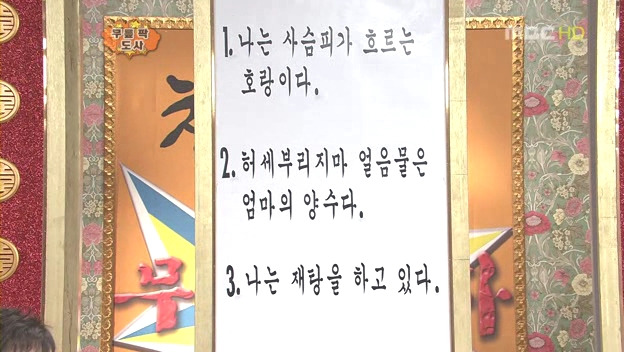 무릎 팍
도사
MBC HD
1. 나는 사슴피가 흐르는
호랑이다.
2. 허세부리지마 얼음물은
엄마의 양수다.
3. 나는 재탕을 하고 있다.